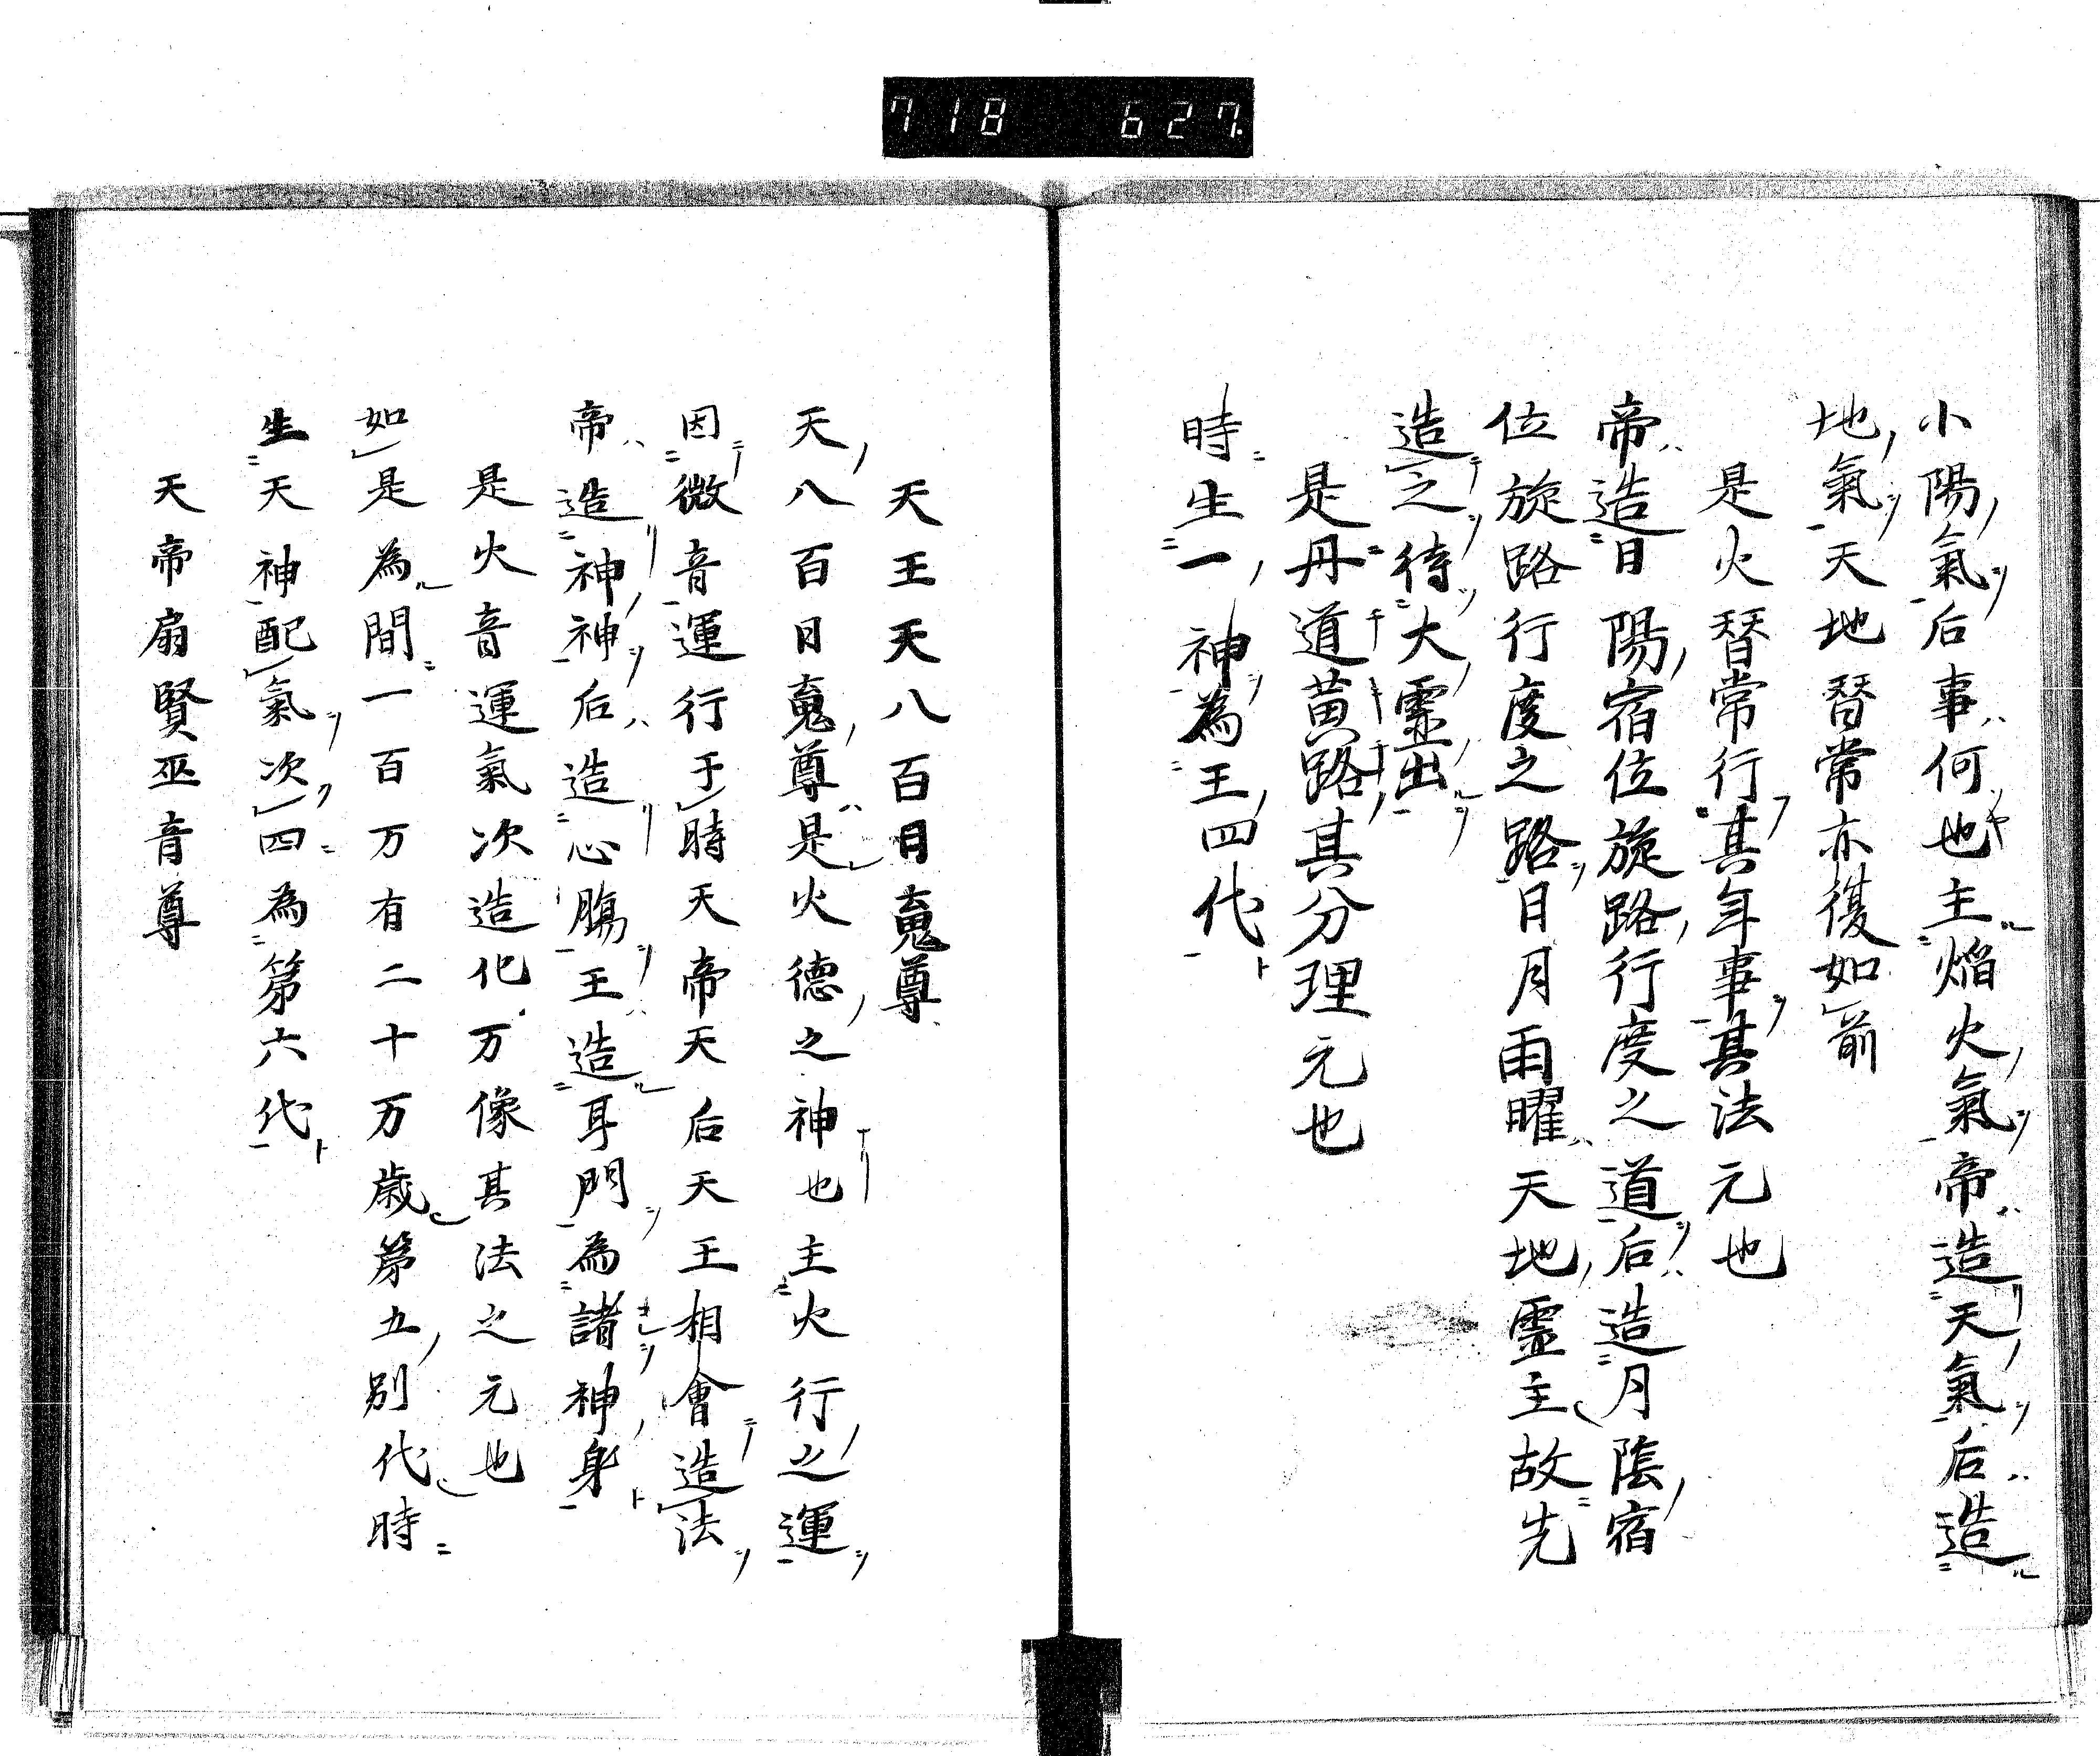 718 627
小陽氣后事何也主焔火氣帝造天氣后造
地氣天地替常亦復如前
是火替常行其年事其法元也
帝造日陽宿位旋路行度之道后造月陰宿
位旋路行度之路日月雨曜天地霊主故先
造之待大霊出
是丹道黄路其分理元也
時生一神為王四代
天王天八百月䰟尊
天八百日䰟尊是火德之神也主火行之運
因微音運行于時天帝天后天王相會造法
帝造神神后造心腸王造耳門為諸神身
是火音運氣次造化万像其法之元也
如是為間一百万有二十万歳第五別代時
生天神配氣次四為第六代
天帝扇賢巫音尊